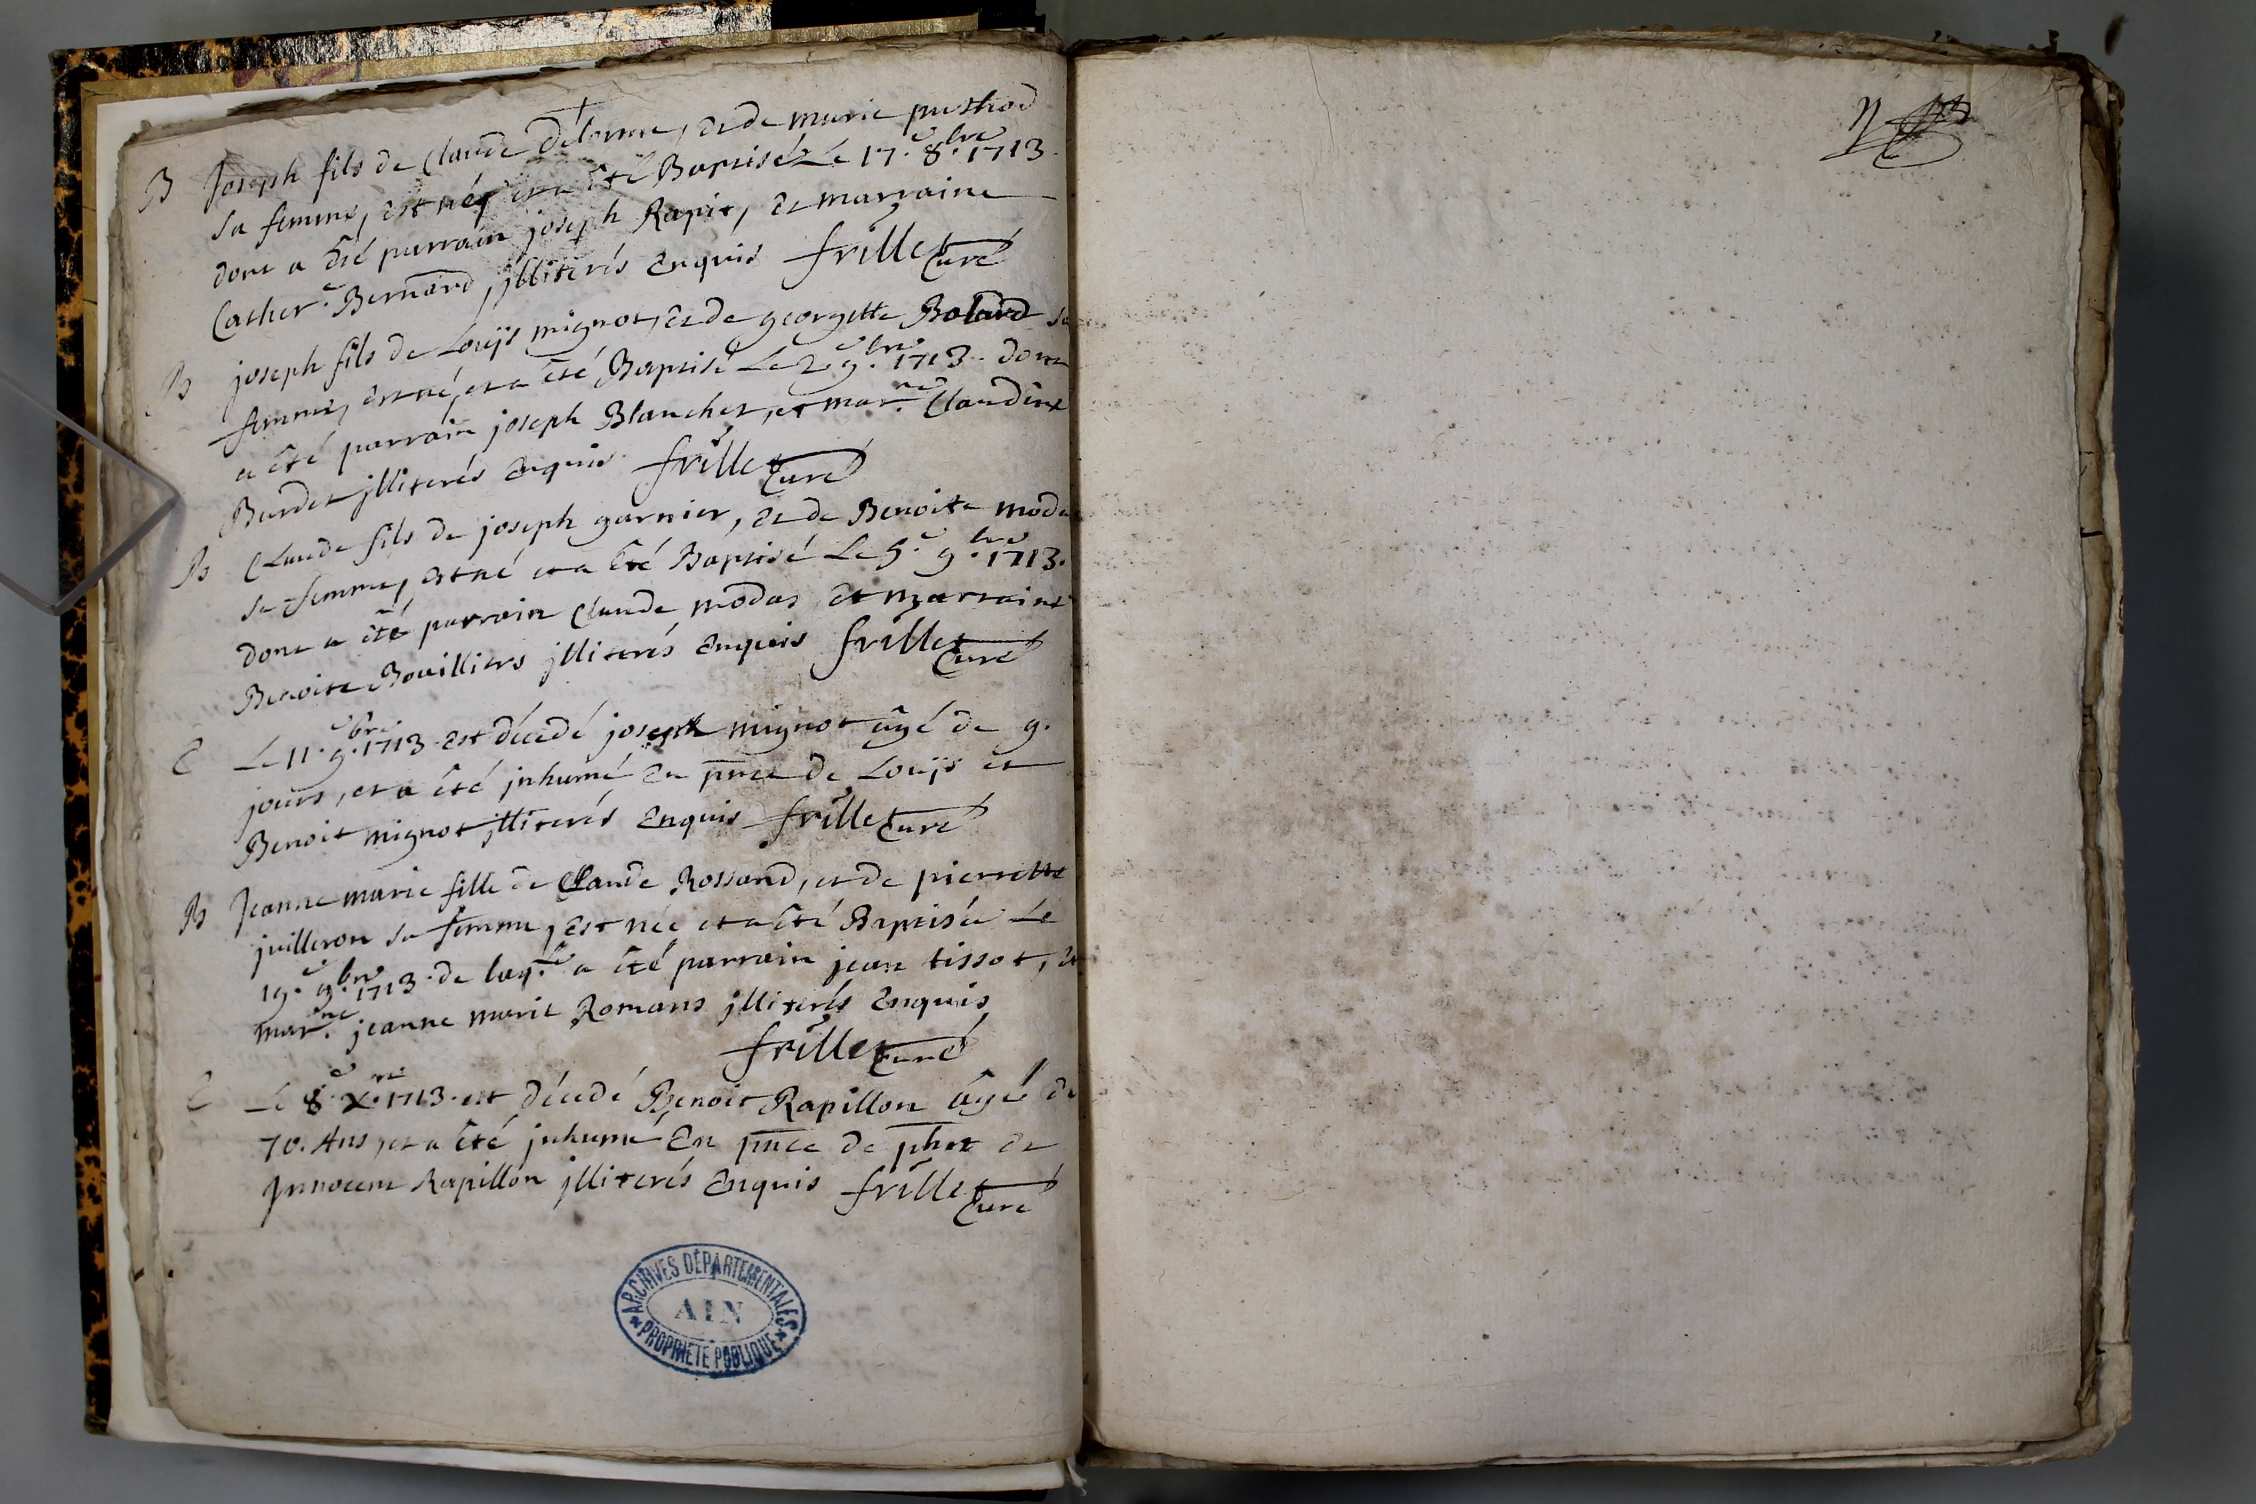 B Joseph fils de Claude Delorme, et de marie puthod
sa femme, est né, et a été Baptisé Le 17.e 8.bre 1713.
dont a été parrain joseph Rapit, et marraine
Cather.e Bernard, jlliterés Enquis frillet Curé
B joseph fils de Loüjs mignot, et de georgette Bolard sa
femme, est né, et a été Baptisé Le 2.e 9.bre 1713. dont
a été parrain joseph Blanchet, et mar.ne Claudine
Burdet jlliterés Enquis. frillet Curé
B Claude fils de joseph garnier, et de Benoite
sa femme, est né et a été Baptisé Le 5.e 9.bre 1713.
dont a été parrain Claude modas, et marraine
Benoite Bouilliers jlliterés Enquis frillet Curé
E Le 11.e 9.bre 1713. est décedé joseph mignot âgé de 9.
jours, et a été jnhumé En pnce de Loüjs et
Benoit mignot jlliterés Enquis frillet Curé
B Jeanne marie fille de Claude Rossand, et de pierrette
juilleron sa femme, est née et a été Baptisée Le
19.e 9.bre 1713. de laq.le a été parrain jean tissot, et
mar.ne jeanne marie Romans jlliterés Enquis
frillet Curé
E Le 8.e X.re 1713. est décedé Benoit Rapillon âgé de
70. Ans, et a été jnhumé En pnce de phot et
Jnnocent Rapillon jlliterés Enquis frillet Curé
ARCHIVES DÉPARTEMENTALES
AIN
PROPRIÉTÉ PUBLIQUE